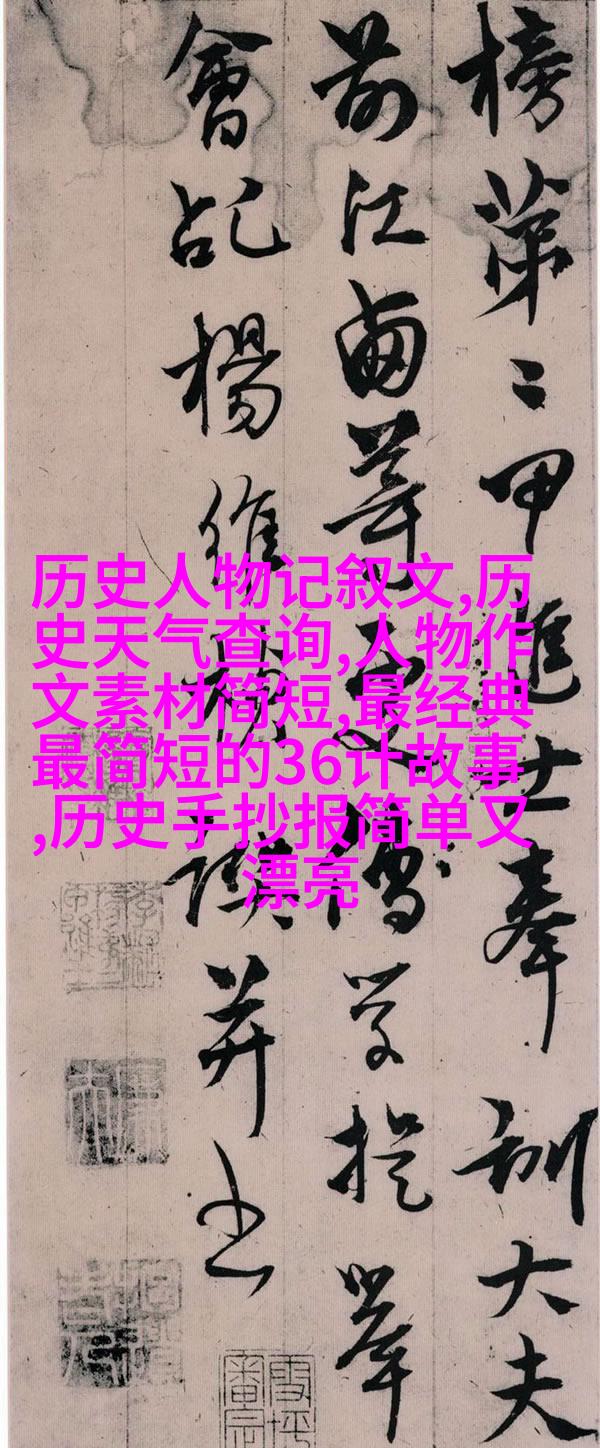 榜第二甲進士奉訓大夫
前江西等處儒學提舉
會稽楊維禎譔并書
历史人物记叙文,历
史天气查询,人物作
文素材简短,最经典
最简短的36计故事
,历史手抄报简单又
漂亮